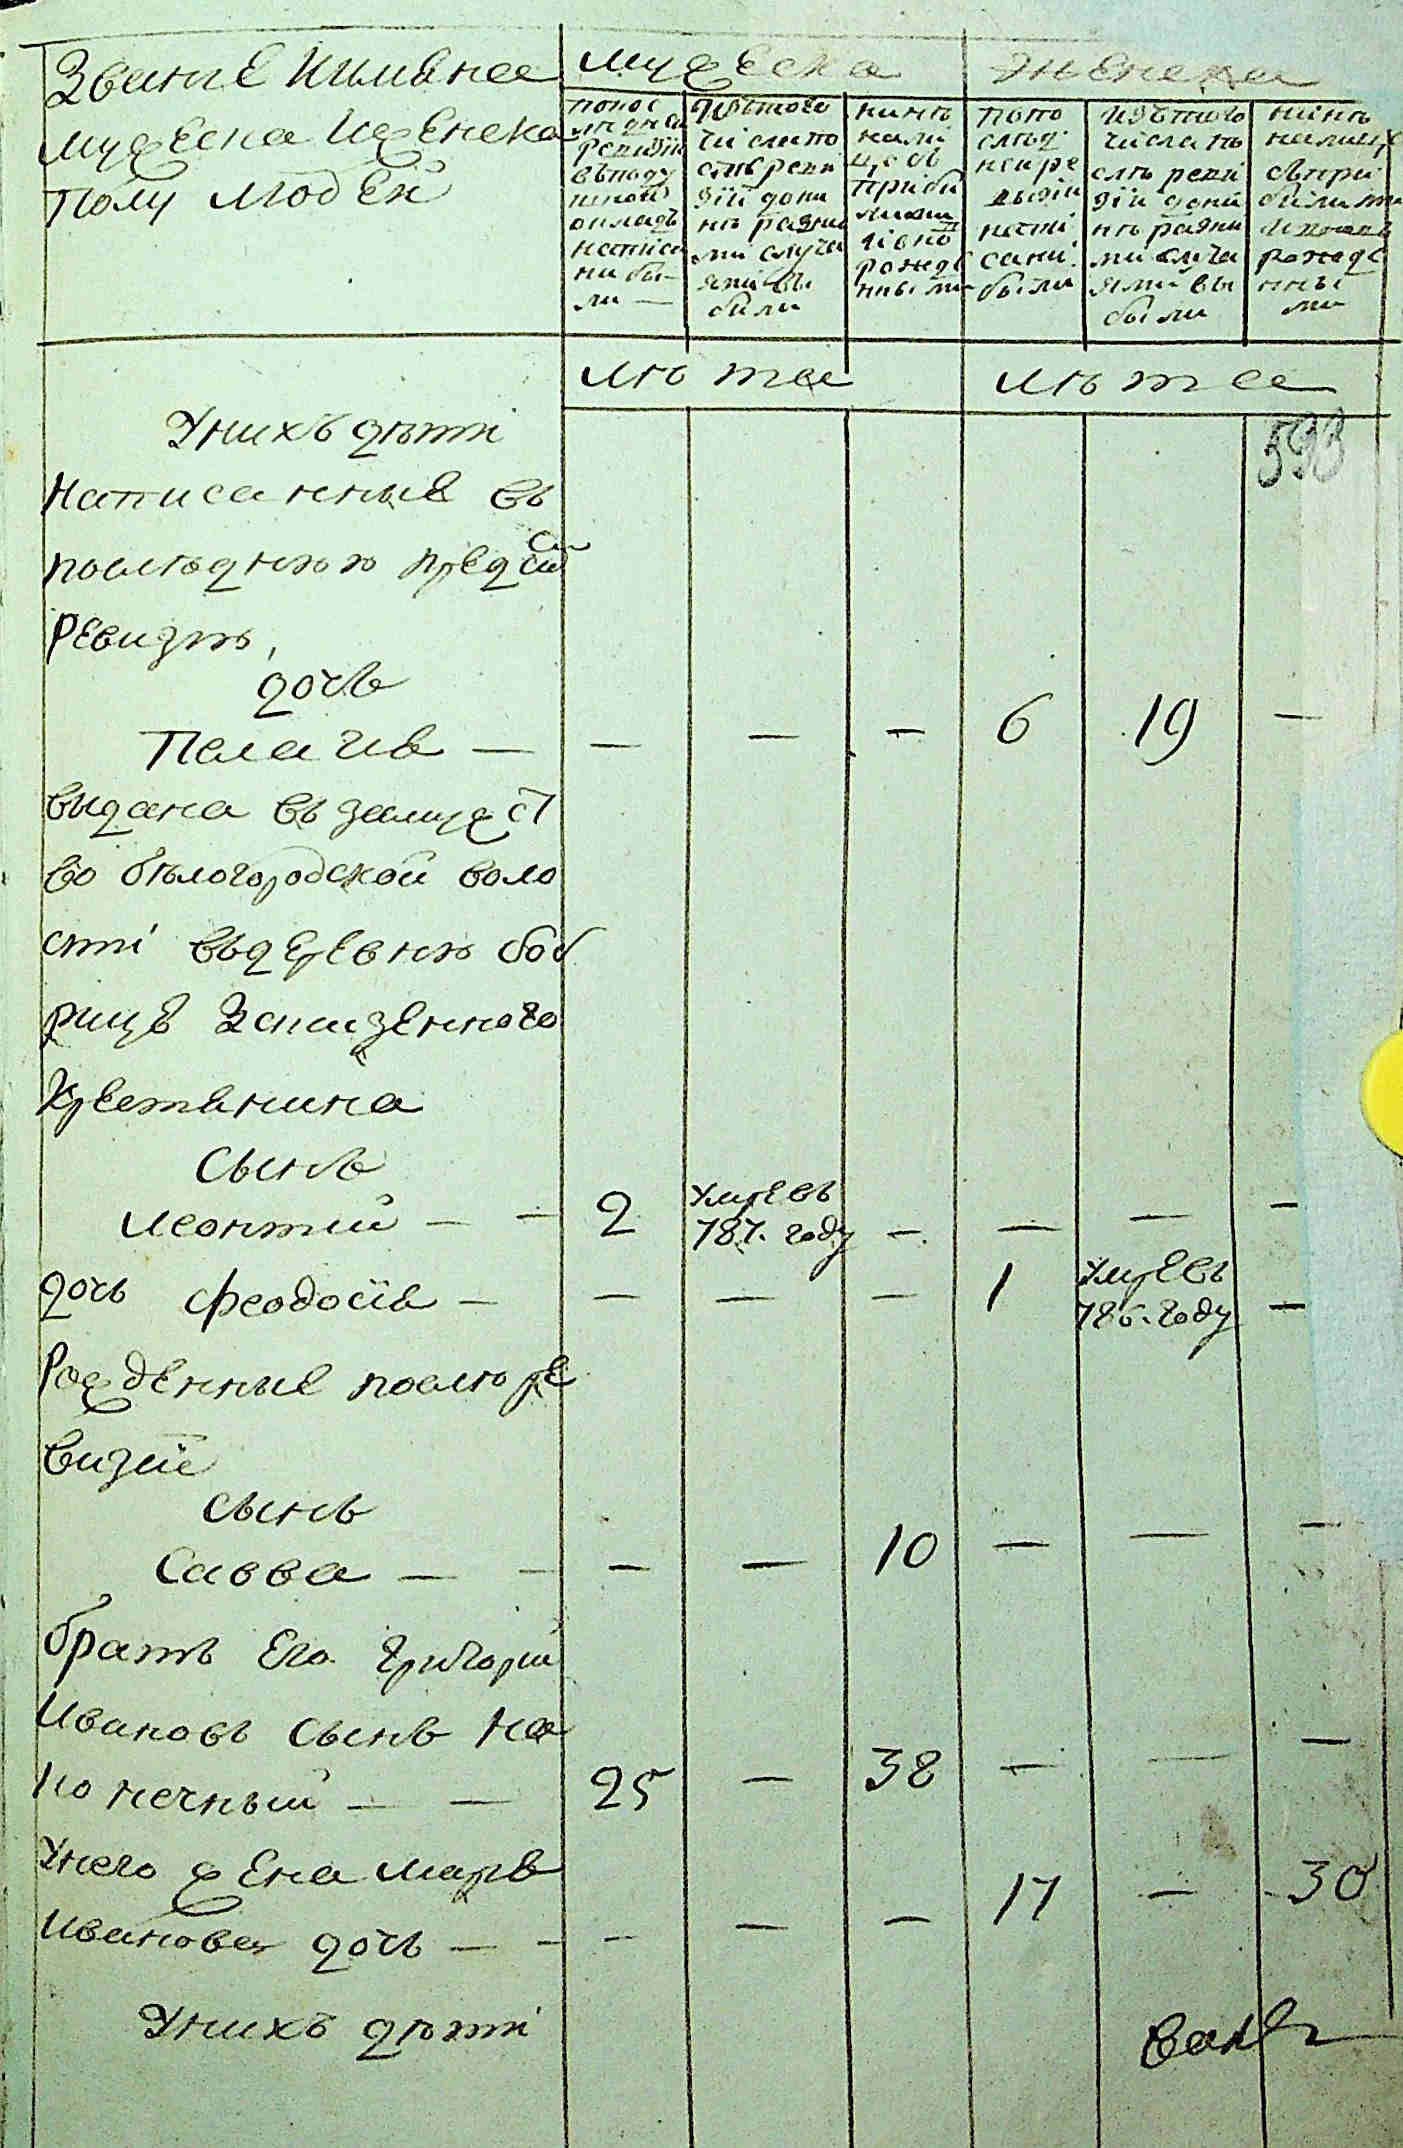 Званіе Иимяна
мужеска Иженска
полу людей
мужеска
женска
попос
лѣдней
ревизіи
въподу
шной
окладъ
написа
ны бы
ли —
изътого
числапо
слѣреви
зіи доны
нѣ разны
ми случа
ями вы
были
нынѣ
нали
цо съ
прибы
лыми
Івно
рожде
нными
попо
слѣд
ней ре
визіи
напи
саны
были
изътого
числа по
слѣ реви
зіи доны
нѣ разны
ми случа
ями вы
были
нынѣ
налицо
съпри
былыми
рожде
нны
ми
лѣта
лѣта
593
Унихъ дѣти
написанныя въ
последнюю предъ сей
ревизію,
дочь
Пелагия — — — — 6 19 —
выдана въ замужст
во бѣлогородской воло
сти въдеревню боб
рицъ Заказенного
крестьянина
Сынъ
Леонтий — — 2 умревъ 787. году — — — —
дочь феодосія — — — — 1 умревъ 786. году —
Рожденные послѣ ре
визіи
сынъ
Савва — — — — 10 — — —
братъ Его Григорий
Ивановъ сынъ На
конечный — — 25 — 38 — — —
Унего жена Марья
Иванова дочь — — — — — 17 — 30
Унихъ дѣти